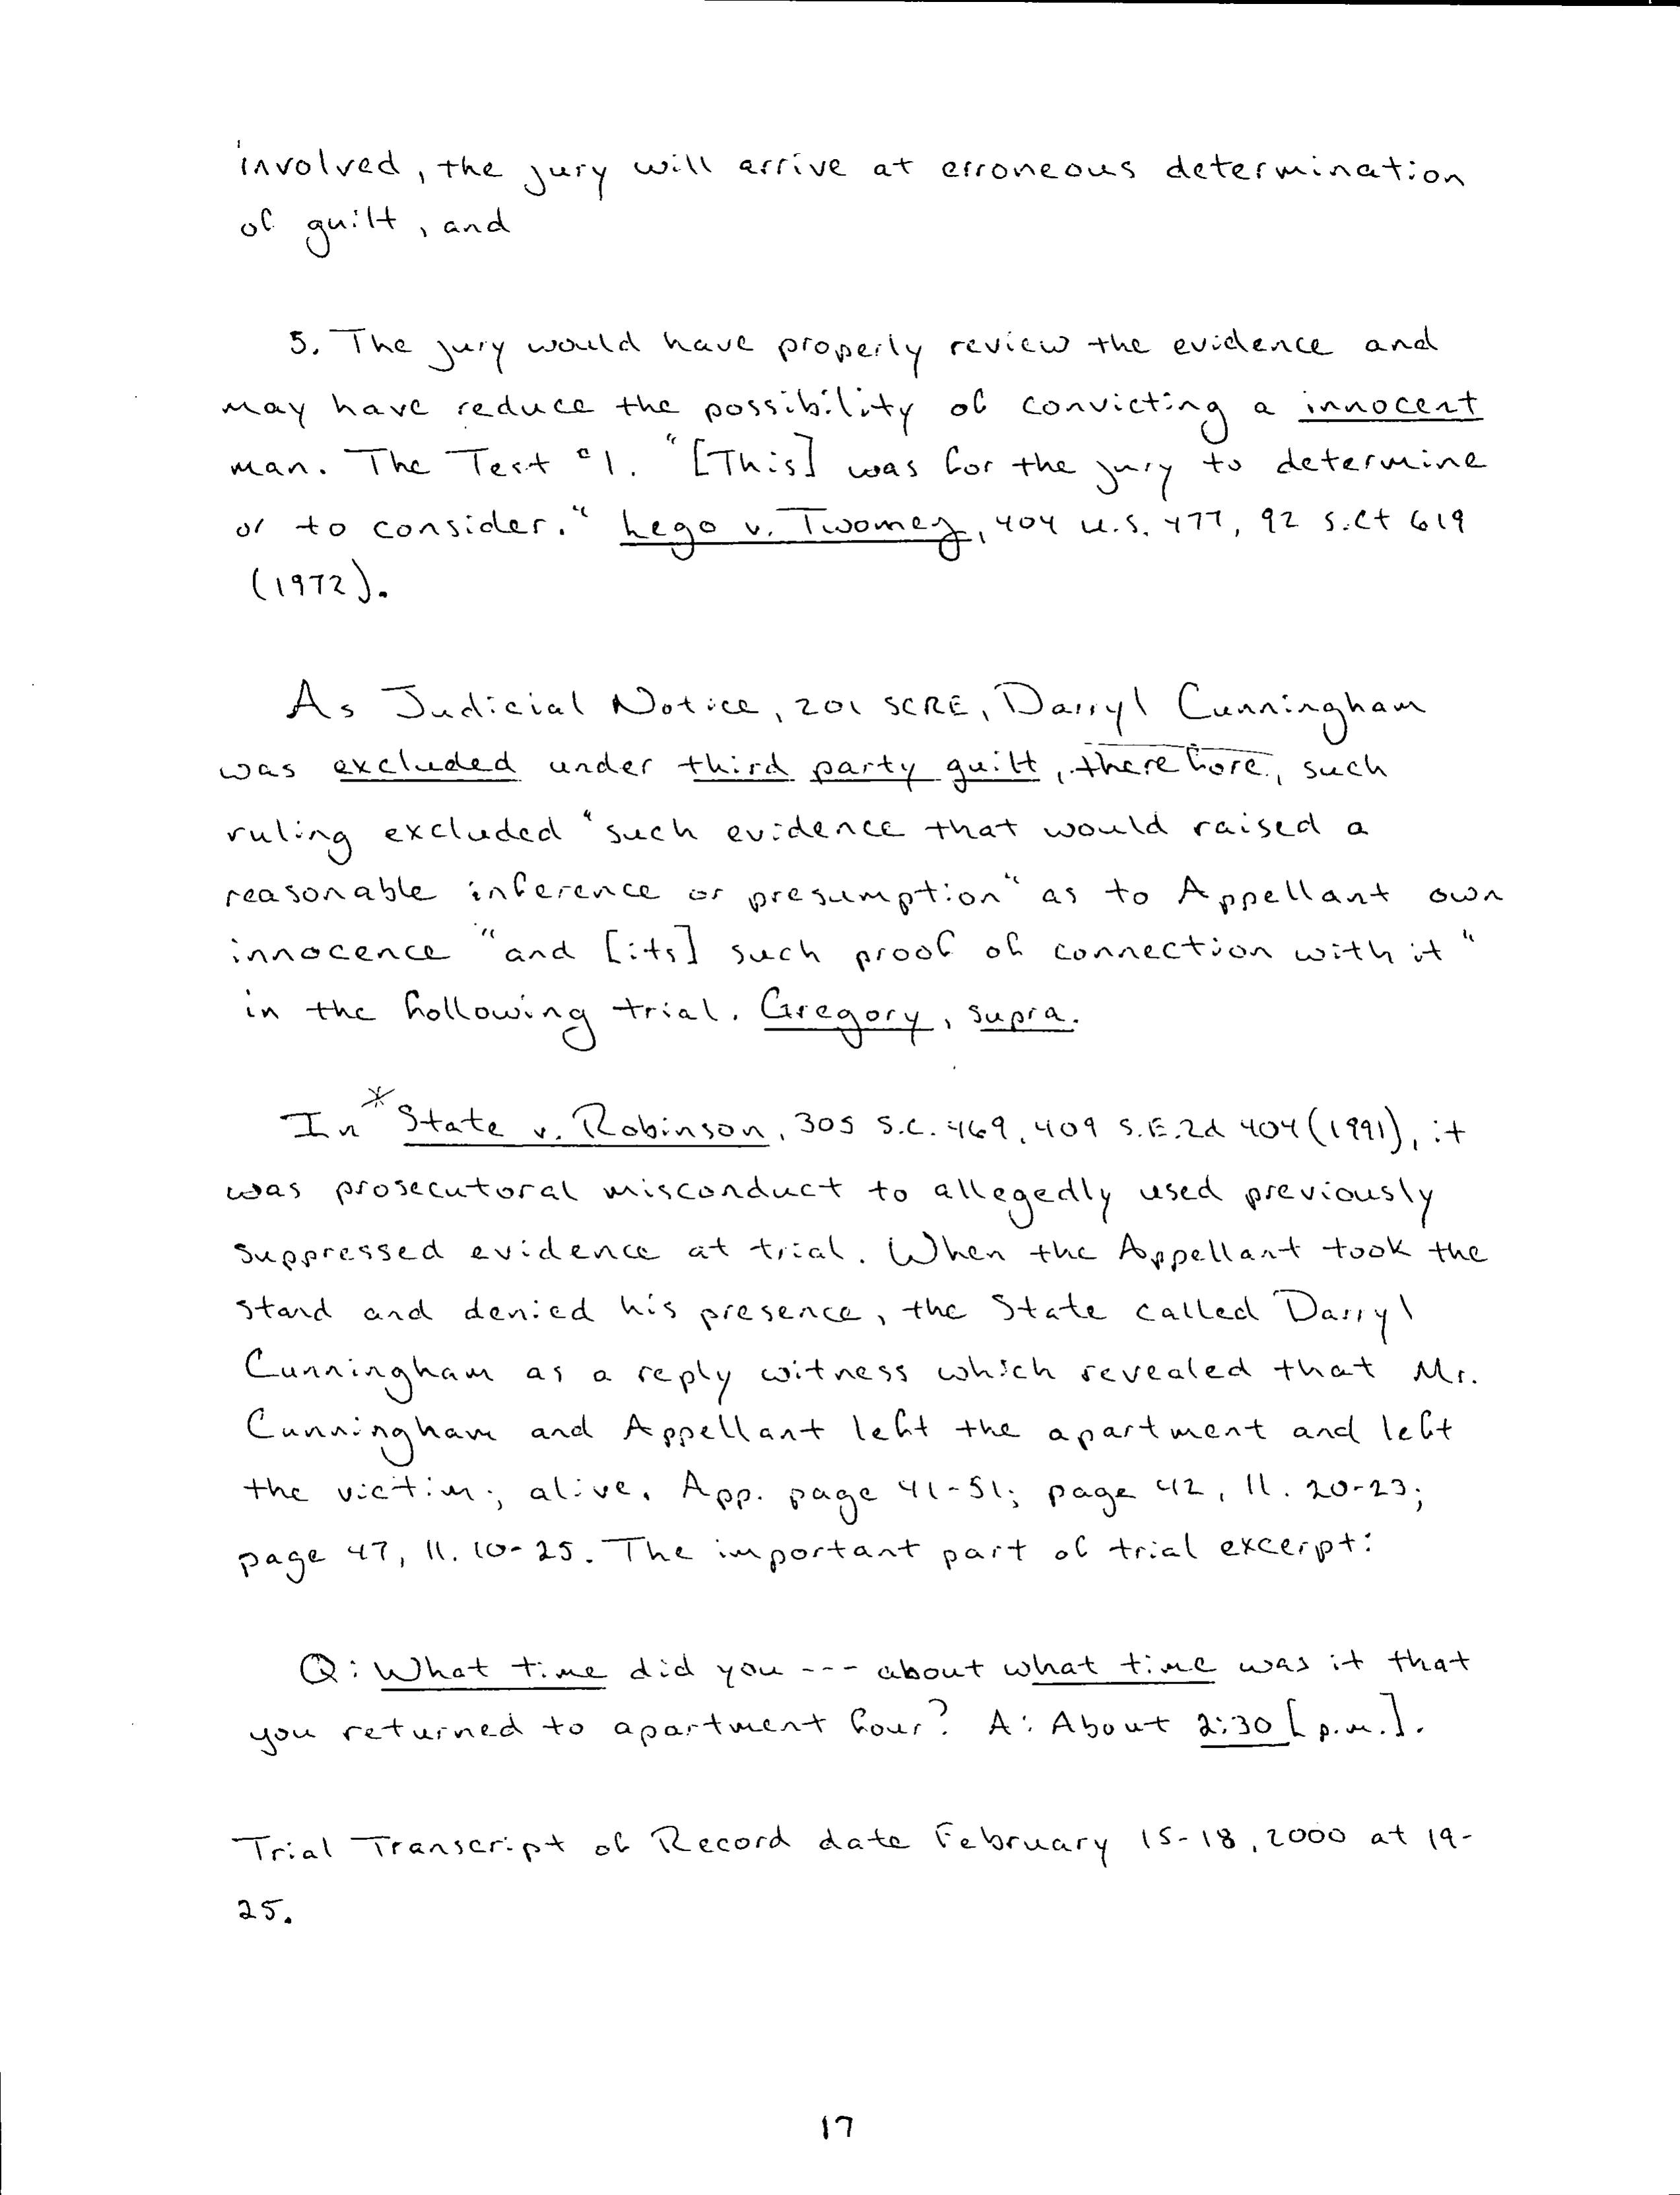 involved, the jury will arrive at erroneous determination
of guilt, and
5. The jury would have properly review the evidence and
may have reduce the possibility of convicting a innocent
man. The Test "1. "[This] was for the jury to determine
or to consider." Lego v. Twomey, 404 U.S. 477, 92 S.Ct 619
(1972).
As Judicial Notice, 201 SCRE, Darryl Cunningham
was excluded under third party guilt, therefore, such
ruling excluded "such evidence that would raised a
reasonable inference or presumption" as to Appellant own
innocence "and [its] such proof of connection with it"
in the following trial. Gregory, supra.
In * State v. Robinson, 305 S.C. 469, 409 S.E.2d 404 (1991), it
was prosecutoral misconduct to allegedly used previously
suppressed evidence at trial. When the Appellant took the
stand and denied his presence, the State called Darryl
Cunningham as a reply witness which revealed that Mr.
Cunningham and Appellant left the apartment and left
the victim; alive. App. page 41-51; page 42, ll. 20-23;
page 47, ll. 10-25. The important part of trial excerpt:
Q: What time did you --- about what time was it that
you returned to apartment four? A: About 2:30 [p.m.].
Trial Transcript of Record date February 15-18, 2000 at 19-
25.
17